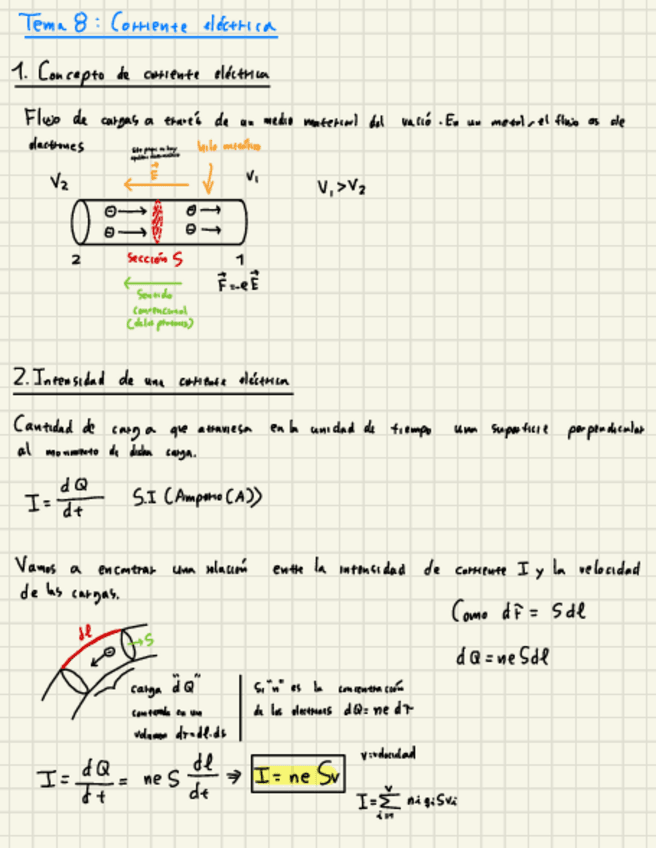 Tema 8: Corriente eléctrica
1. Concepto de corriente eléctrica
Flujo de cargas a través de un medio material del vació. En un metal, el flujo es de
electrones
hilo metálico
E
V₂
V₁
V₁ > V₂
⊖→ ⊖→
⊖→ ⊖→
2 Sección S 1
F = -eE
Sentido
convencional
(de las positivas)
2. Intensidad de una corriente eléctrica
Cantidad de carga que atraviesa en la unidad de tiempo una superficie perpendicular
al movimiento de dicha carga.
I = dQ/dt S.I (Amperio (A))
Vamos a encontrar una relación entre la intensidad de corriente I y la velocidad
de las cargas.
Como dτ = Sdl
dQ = neSdl
dl
→S
carga "dQ"
contenida en un
volumen dτ=dl·ds
Si "n" es la concentración
de los electrones dQ = ne dτ
v=velocidad
I = dQ/dt = neS dl/dt ⇒ I = ne Sv
I = Σ nᵢqᵢSvᵢ